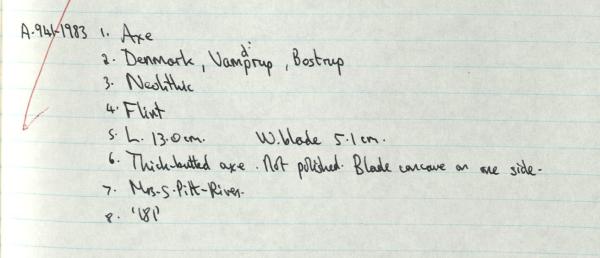 A.941-1983 1. Axe
2. Denmark, Vamdrup, Bostrup
3. Neolithic
4. Flint
5. L. 13.0cm. W.blade 5.1cm.
6. Thick-butted axe. Not polished. Blade concave on one side.
7. Mrs-S-Pitt-River.
8. '181'